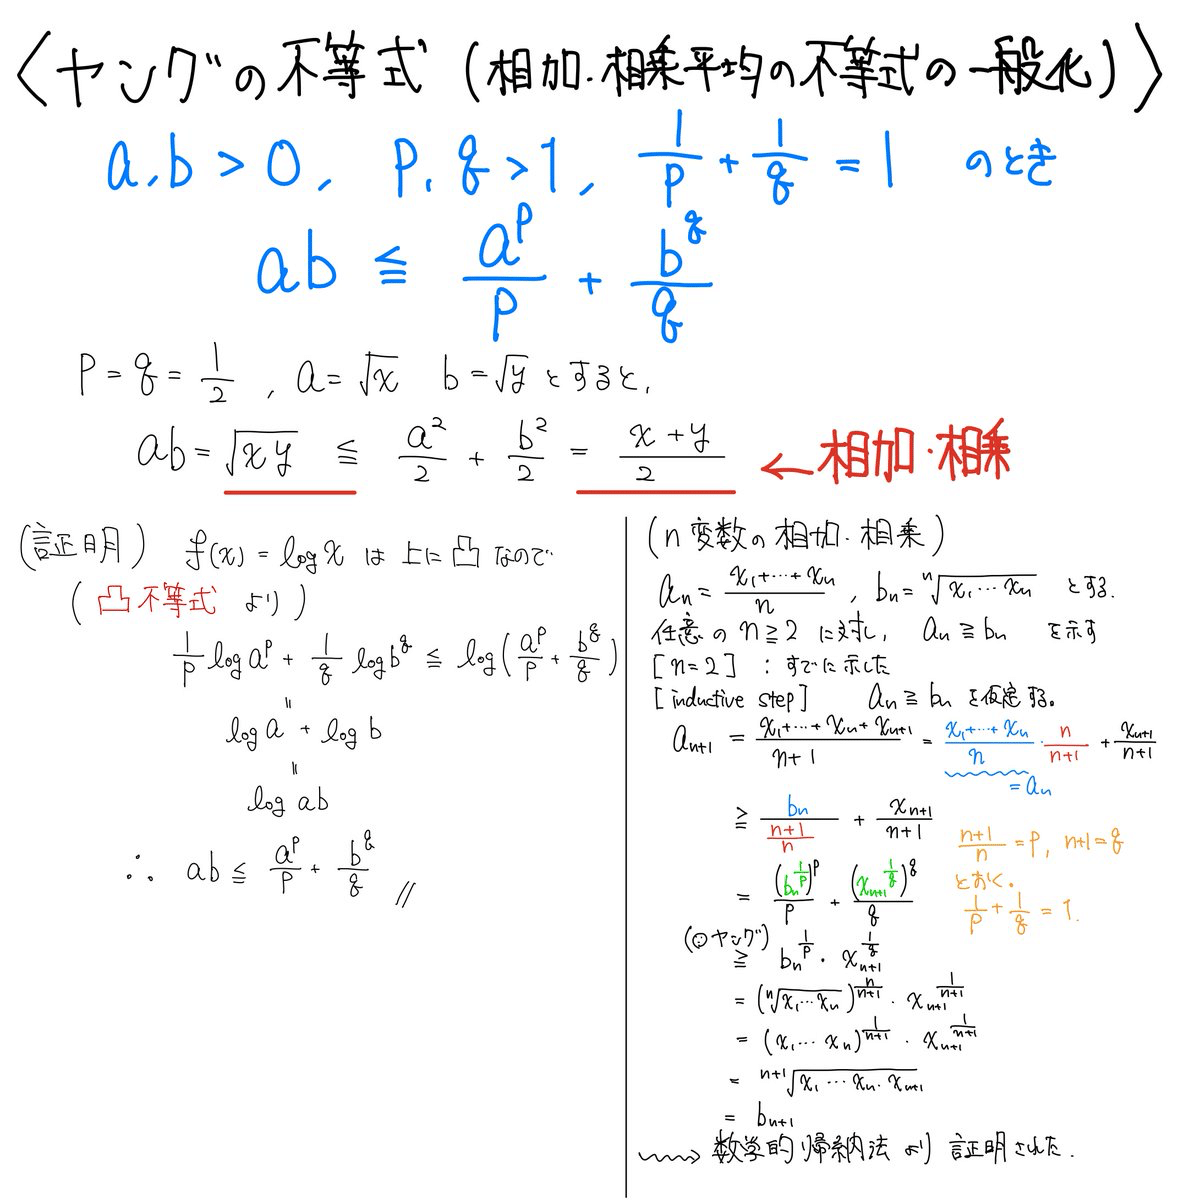 〈ヤングの不等式(相加・相乗平均の不等式の一般化)〉
a, b > 0, p, q > 1, 1/p + 1/q = 1 のとき
ab ≦ a^p/p + b^q/q
p = q = 1/2, a = √x b = √y とすると,
ab = √(xy) ≦ a²/2 + b²/2 = (x+y)/2 ← 相加・相乗
(証明) f(x) = log x は上に凸なので
(凸不等式より)
1/p log a^p + 1/q log b^q ≦ log(a^p/p + b^q/q)
||
log a + log b
||
log ab
∴ ab ≦ a^p/p + b^q/q //
(n変数の相加・相乗)
a_n = (x_1+…+x_n)/n, b_n = ⁿ√(x_1…x_n) とする.
任意の n≧2 に対し, a_n ≧ b_n を示す
[n=2] : すでに示した
[inductive step] a_n ≧ b_n を仮定する。
a_{n+1} = (x_1+…+x_n+x_{n+1})/(n+1) = (x_1+…+x_n)/n · n/(n+1) + x_{n+1}/(n+1)
= a_n
≧ b_n/((n+1)/n) + x_{n+1}/(n+1)
(n+1)/n = p, n+1 = q
とおく。
1/p + 1/q = 1.
= (b_n^{1/p})^p/p + (x_{n+1}^{1/q})^q/q
(∵ヤング)
≧ b_n^{1/p} · x_{n+1}^{1/q}
= (ⁿ√(x_1…x_n))^{n/(n+1)} · x_{n+1}^{1/(n+1)}
= (x_1…x_n)^{1/(n+1)} · x_{n+1}^{1/(n+1)}
= ⁿ⁺¹√(x_1…x_n·x_{n+1})
= b_{n+1}
〰→ 数学的帰納法より証明された.